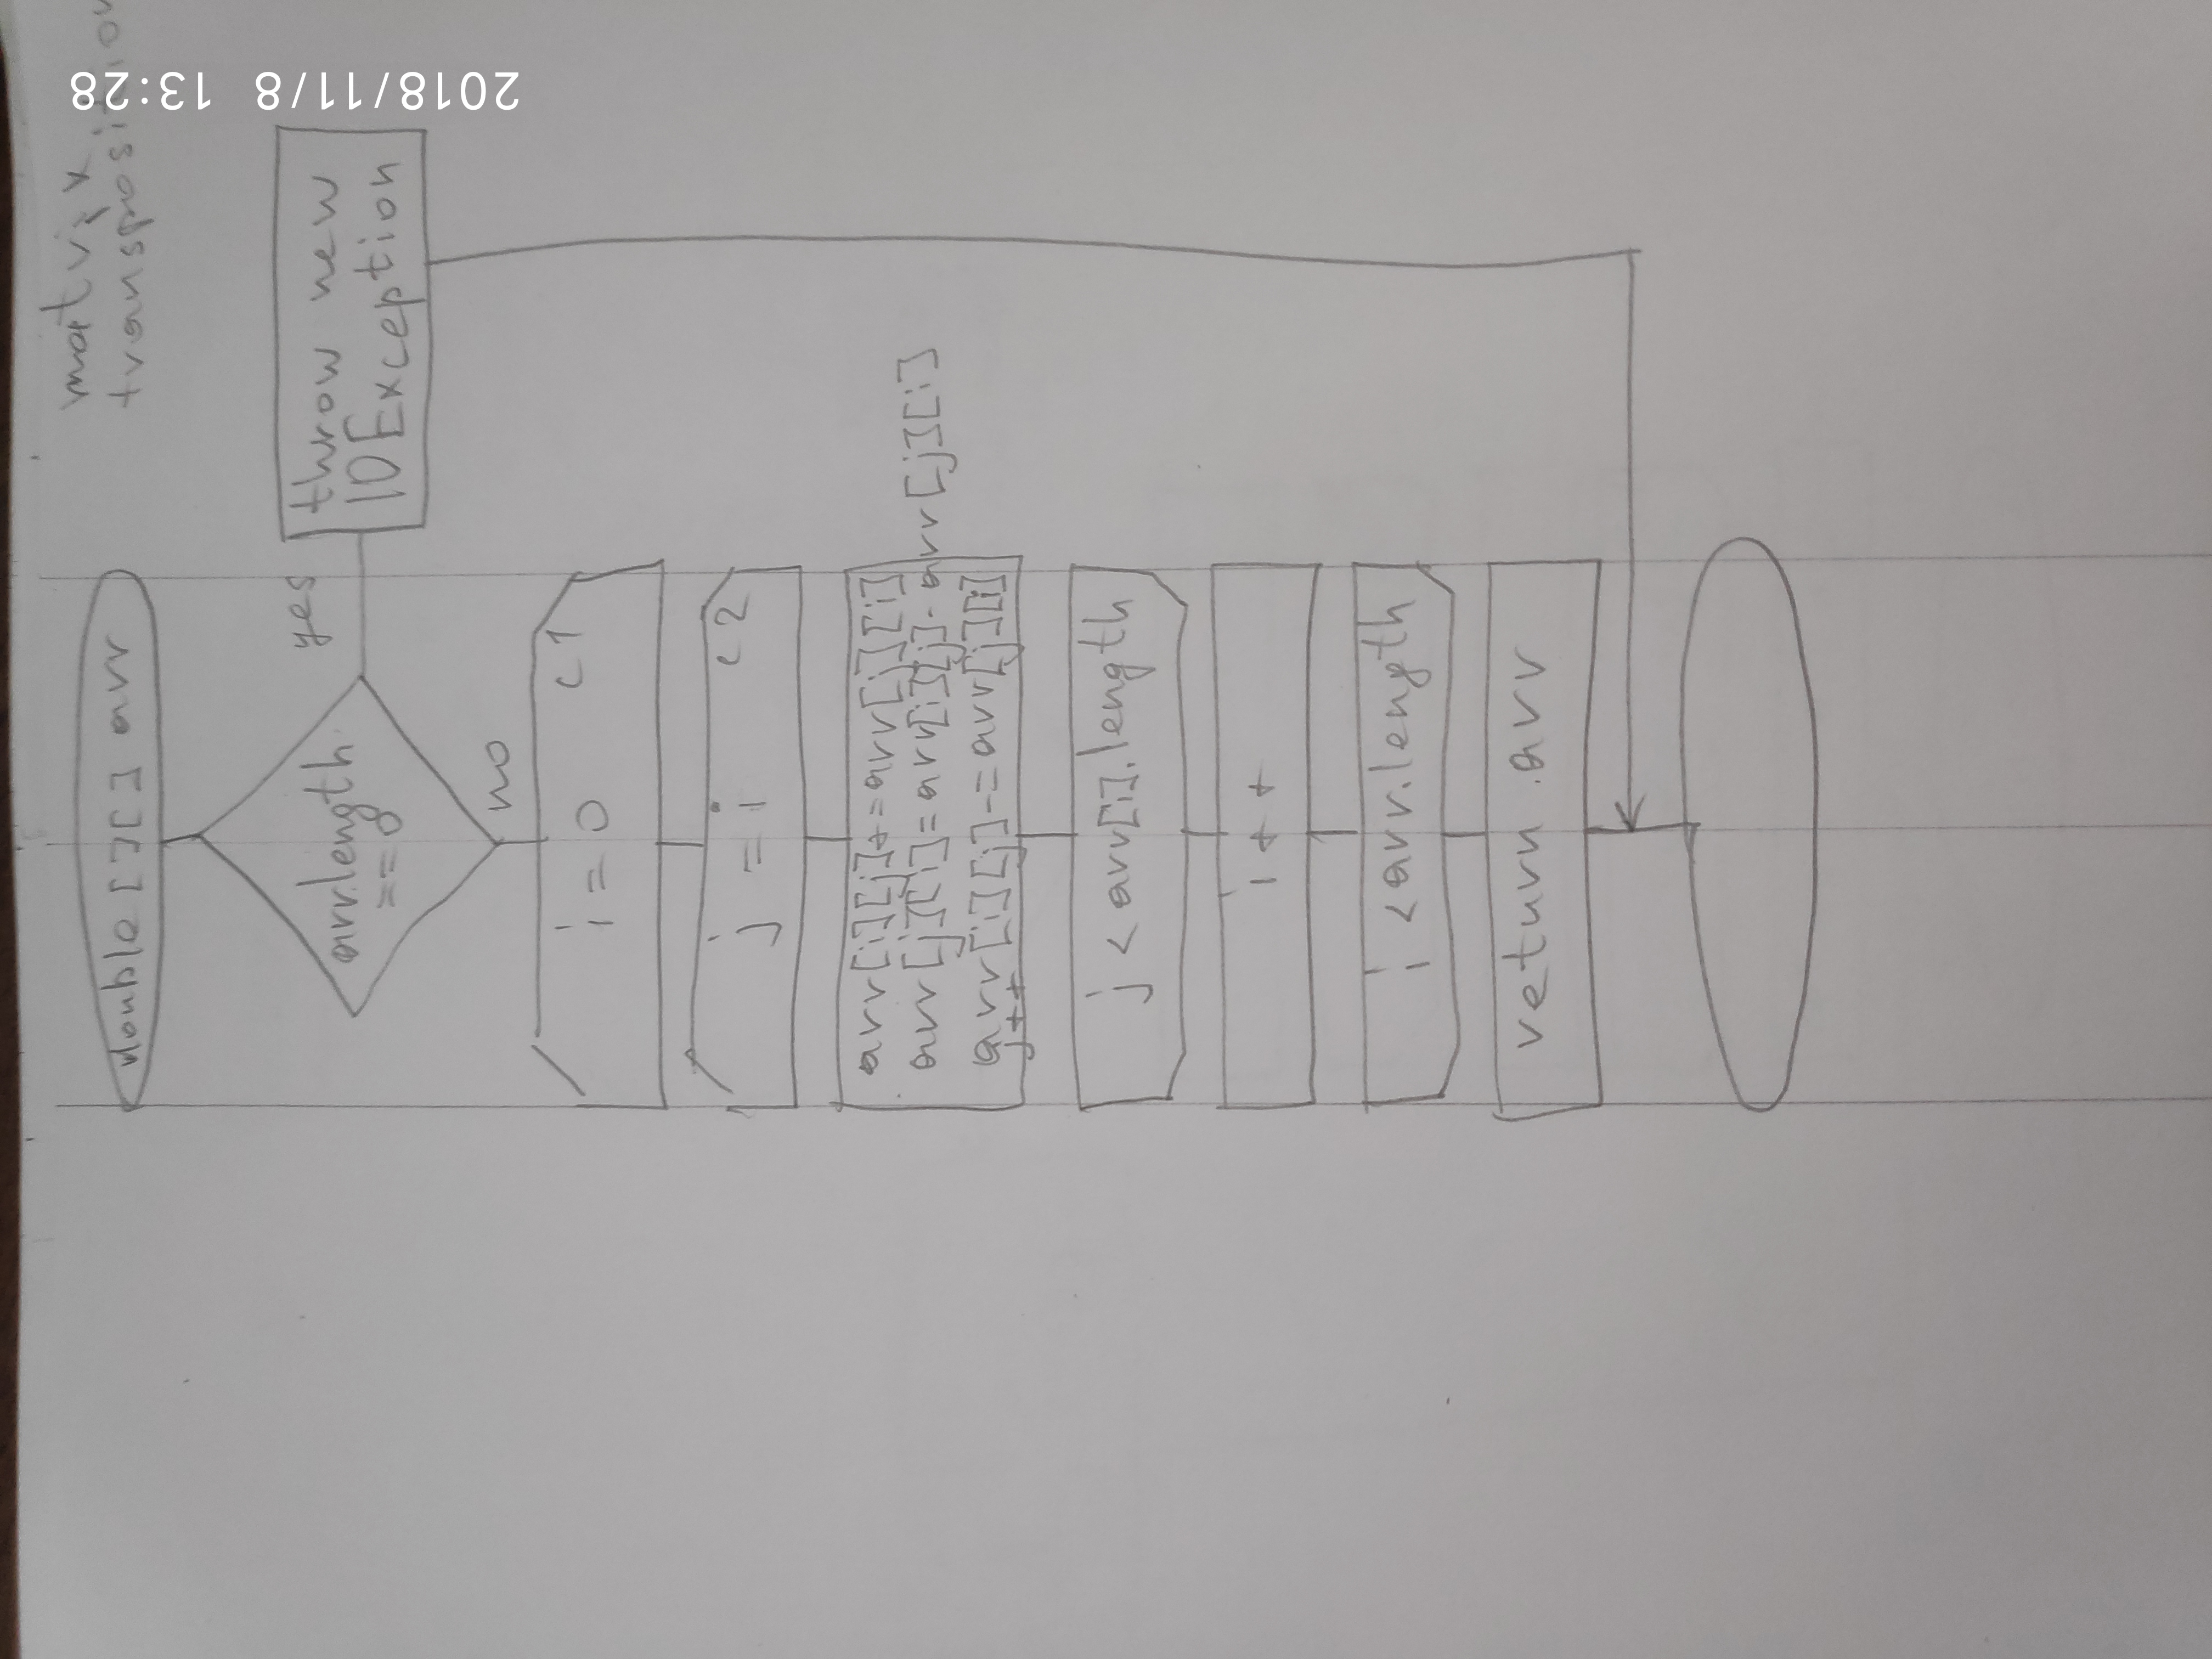 matrix
transposition
2018/11/8 13:28
double [][] arr
arr.length
== 0
yes
throw new
IOException
no
i = 0 c1
j = i c2
arr[i][j]+=arr[j][i]
arr[j][i]=arr[i][j]-arr[j][i]
arr[i][j]-=arr[j][i]
j++
j < arr[i].length
i++
i < arr.length
return arr